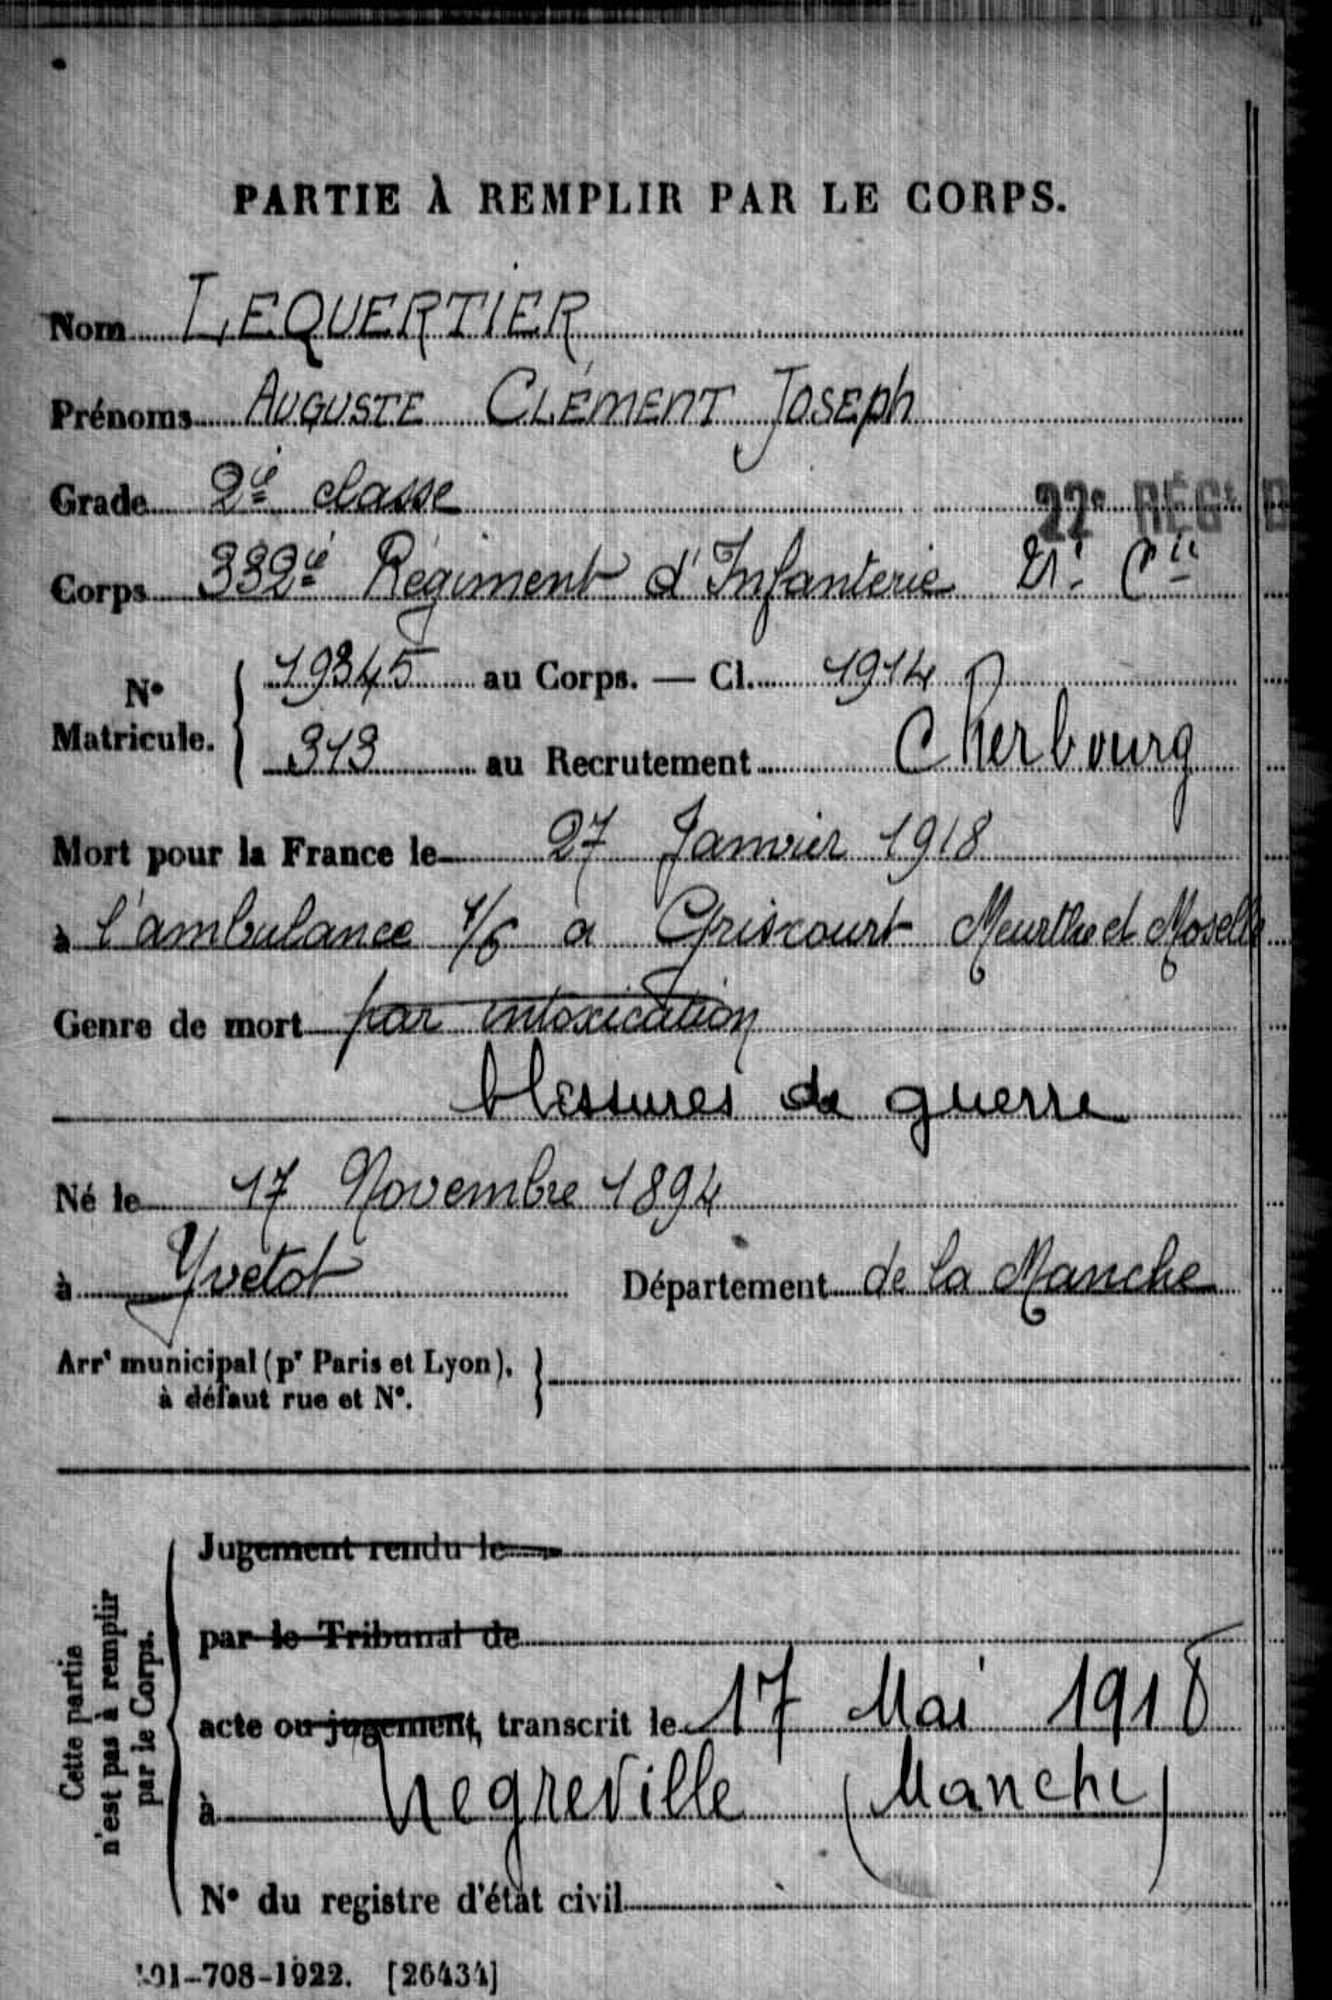 PARTIE À REMPLIR PAR LE CORPS.
Nom LEQUERTIER
Prénoms AUGUSTE CLÉMENT JOSEPH
Grade 2è classe
22e RÉGt
Corps 332è Régiment d'Infanterie 21è Cie
N° Matricule. 19345 au Corps. — Cl. 1914
313 au Recrutement Cherbourg
Mort pour la France le 27 Janvier 1918
à l'ambulance 1/6 a Griscourt Meurthe et Moselle
Genre de mort par intoxication
blessures de guerre
Né le 17 Novembre 1894
à Yvetot Département de la Manche
Arrt municipal (pr Paris et Lyon),
à défaut rue et N°.
Cette partie
n'est pas à remplir
par le Corps.
Jugement rendu le
par le Tribunal de
acte ou jugement, transcrit le 17 Mai 1918
à Negreville (Manche)
N° du registre d'état civil
01-708-1922. [26434]